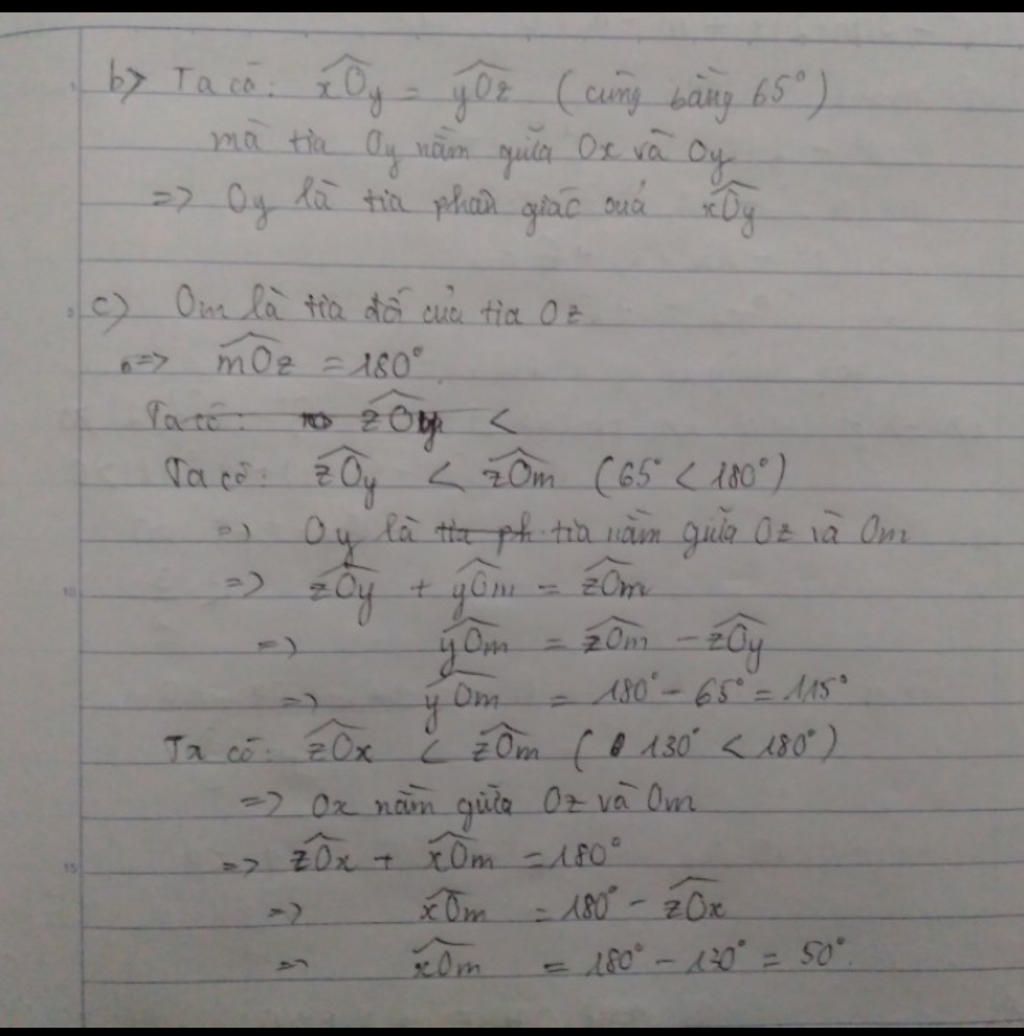 b> Ta có: xOy = yOz (cùng bằng 65°)
mà tia Oy nằm giữa Ox và Oy
=> Oy là tia phân giác của xOy
c) Om là tia đối của tia Oz
=> mOz = 180°
Ta có: zOy <
Ta có: zOy < zOm (65° < 180°)
=> Oy là tia ph tia nằm giữa Oz và Om
=> zOy + yOm = zOm
=> yOm = zOm - zOy
=> yOm = 180° - 65° = 115°
Ta có: zOx < zOm (130° < 180°)
=> Ox nằm giữa Oz và Om
=> zOx + xOm = 180°
=> xOm = 180° - zOx
=> xOm = 180° - 130° = 50°.